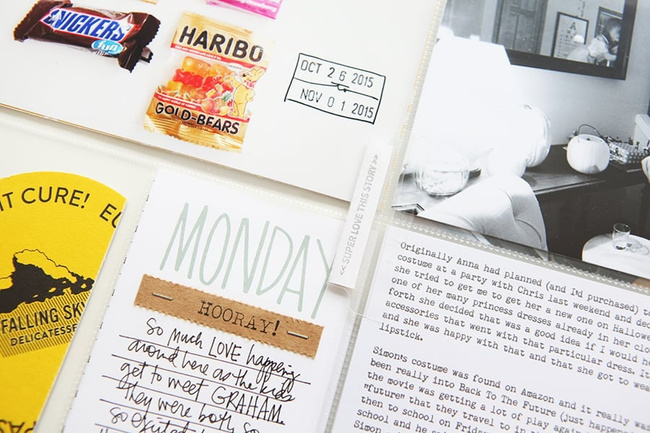 SNICKERS
fun
HARIBO
GOLD-BEARS
OCT 26 2015
NOV 01 2015
IT CURE!
FALLING SKY
DELICATESSE
<< SUPER LOVE THIS STORY >>
MONDAY
HOORAY!
So much LOVE happening
around here as the kids
get to meet GRAHAM.
they were both so
so excited
Originally Anna had planned (and I'd purchased)
costume at a party with Chris last weekend and
she tried to get me to get her a new one on
one of her many princess dresses already in her
forth she decided that was a good idea if I would
accessories that went with that particular dress. It
and she was happy with that and that she got to
lipstick.
Simon's costume was found on Amazon and it really
been really into Back To The Future (just
the movie was getting a lot of play again
"future" that they travel to in
then to school on Friday
school and he
Simon